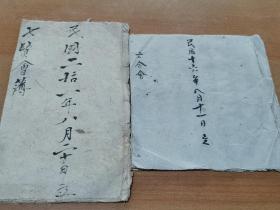 民國二拾八年八月二十日立
七賢會簿
民國十六年八月十一日立
七合會